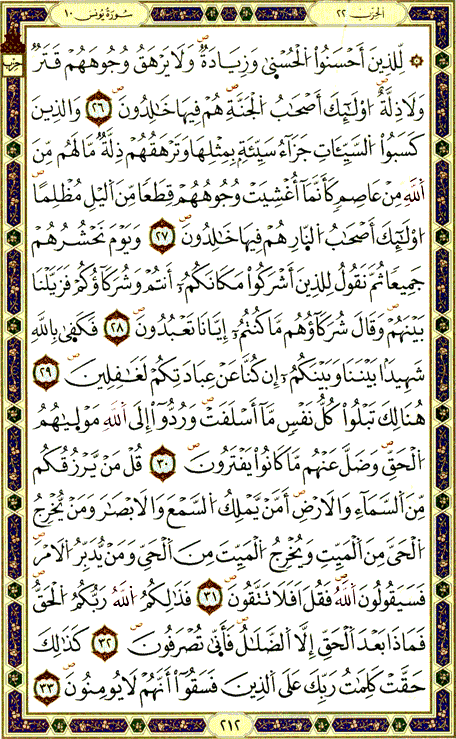 الحزب ٢٢
سورة يونس ١٠
حزب
۞ لِّلذِينَ أَحْسَنُواْ الْحُسْنَىٰ وَزِيَادَةٌ وَلَا يَرْهَقُ وُجُوهَهُمْ قَتَرٌ
وَلَا ذِلَّةٌ اوْلَٰٓئِكَ أَصْحَٰبُ الْجَنَّةِ هُمْ فِيهَا خَٰلِدُونَ ٢٦ وَالذِينَ
كَسَبُواْ السَّيِّـَٔاتِ جَزَآءُ سَيِّئَةٍۢ بِمِثْلِهَا وَتَرْهَقُهُمْ ذِلَّةٌ مَّا لَهُم مِّنَ
اَللَّهِ مِنْ عَاصِمٍ كَأَنَّمَآ أُغْشِيَتْ وُجُوهُهُمْ قِطَعًا مِّنَ اَليْلِ مُظْلِمًا
اوْلَٰٓئِكَ أَصْحَٰبُ النّ۪ارِ هُمْ فِيهَا خَٰلِدُونَ ٢٧ وَيَوْمَ نَحْشُرُهُمْ
جَمِيعًا ثُمَّ نَقُولُ لِلذِينَ أَشْرَكُواْ مَكَانَكُمُۥٓ أَنتُمْ وَشُرَكَآؤُكُمْ فَزَيَّلْنَا
بَيْنَهُمْ وَقَالَ شُرَكَآؤُهُم مَّا كُنتُمُۥٓ إِيَّانَا تَعْبُدُونَ ٢٨ فَكَفَىٰ بِاللَّهِ
شَهِيدًۢا بَيْنَنَا وَبَيْنَكُمُۥٓ إِن كُنَّا عَنْ عِبَادَتِكُمْ لَغَٰفِلِينَ ٢٩
هُنَالِكَ تَبْلُواْ كُلُّ نَفْسٍ مَّآ أَسْلَفَتْ وَرُدُّوٓاْ إِلَى اَللَّهِ مَوْل۪يٰهُمُ
الْحَقِّ وَضَلَّ عَنْهُم مَّا كَانُواْ يَفْتَرُونَ ٣٠ قُلْ مَنْ يَّرْزُقُكُم
مِّنَ اَلسَّمَآءِ وَالَارْضِ أَمَّنْ يَّمْلِكُ السَّمْعَ وَالَابْصَٰرَ وَمَنْ يُّخْرِجُ
الْحَيَّ مِنَ اَلْمَيِّتِ وَيُخْرِجُ الْمَيِّتَ مِنَ اَلْحَيِّ وَمَنْ يُّدَبِّرُ الَامْرَ
فَسَيَقُولُونَ اَللَّهُ فَقُلَ اَفَلَا تَتَّقُونَ ٣١ فَذَٰلِكُمُ اللَّهُ رَبُّكُمُ الْحَقُّ
فَمَاذَا بَعْدَ الْحَقِّ إِلَّا الضَّلَٰلُ فَأَنّ۪ىٰ تُصْرَفُونَ ٣٢ كَذَٰلِكَ
حَقَّتْ كَلِمَٰتُ رَبِّكَ عَلَى الذِينَ فَسَقُوٓاْ أَنَّهُمْ لَا يُومِنُونَ ٣٣
٢١٢